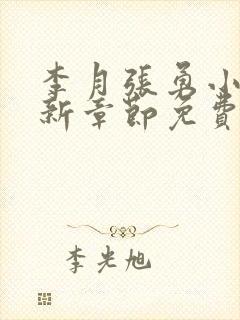 李月張勇小
新章節免費
李光旭